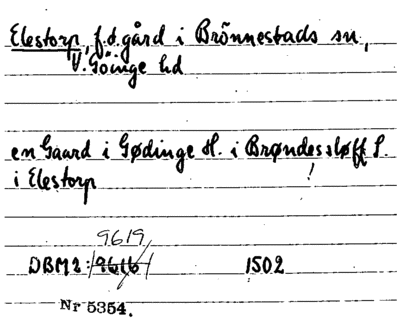 Elestorp, f.d. gård i Brönnestads sn,
V. Göinge hd
en Gaard i Gødinge H. i Brøndesløff S.
i Elestorp !
9619
DBM2: 9616 1502
Nr 5354.